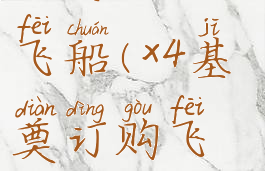 fēi chuán jī
飞船(x4基
diàn dìng gòu fēi
奠订购飞